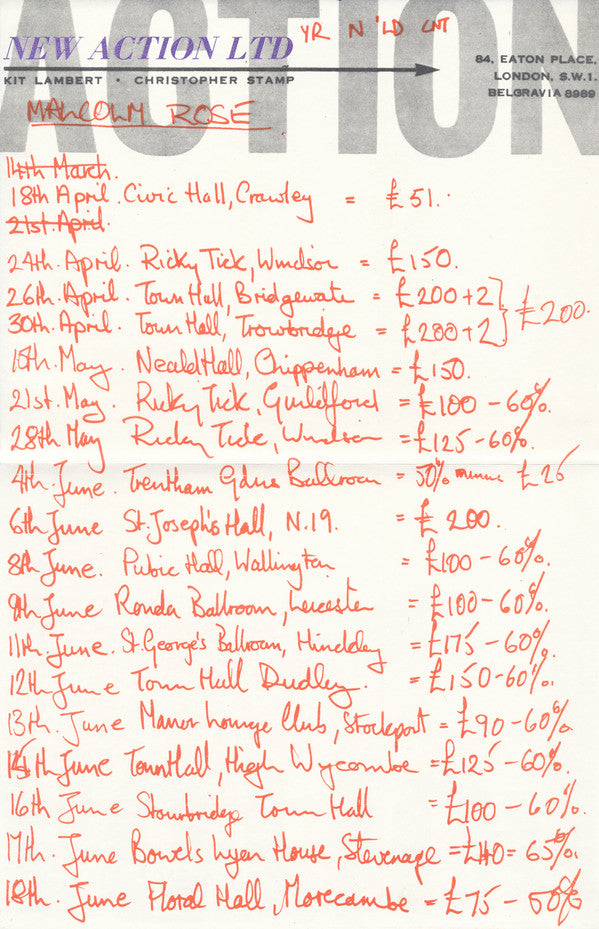 ACTION
YR N 'LD CNT
NEW ACTION LTD
KIT LAMBERT • CHRISTOPHER STAMP
84, EATON PLACE,
LONDON, S.W.1.
BELGRAVIA 8989
MALCOLM ROSE
14th March.
18th April. Civic Hall, Crawley = £51.
21st April.
24th. April. Ricky Tick, Windsor = £150.
26th. April. Town Hall, Bridgewate = £200+2
30th April. Town Hall, Trowbridge = £200+2
£200.
15th. May. Neald Hall, Chippenham = £150.
21st. May. Ricky Tick, Guildford = £100 - 60%.
28th May Ricky Tick, Windsor = £125 - 60%.
4th. June. Trentham Gdns Ballroom = 50% minus £25
6th June St. Joseph's Hall, N.19. = £200.
8th June. Pubic Hall, Wallington = £100 - 60%.
9th June Ronda Ballroom, Leicester = £100 - 60%.
11th. June. St. George's Ballroom, Hinckley = £175 - 60%.
12th June Town Hall Dudley. = £150-60%.
13th. June Manor Lounge Club, Stockport = £90 - 60%
15th June Town Hall, High Wycombe = £125 - 60%.
16th June Stourbridge Town Hall = £100 - 60%.
17th. June Bowels Lyen House, Stevenage = £110 = 65%.
18th. June Floral Hall, Morecambe = £75 - 50%